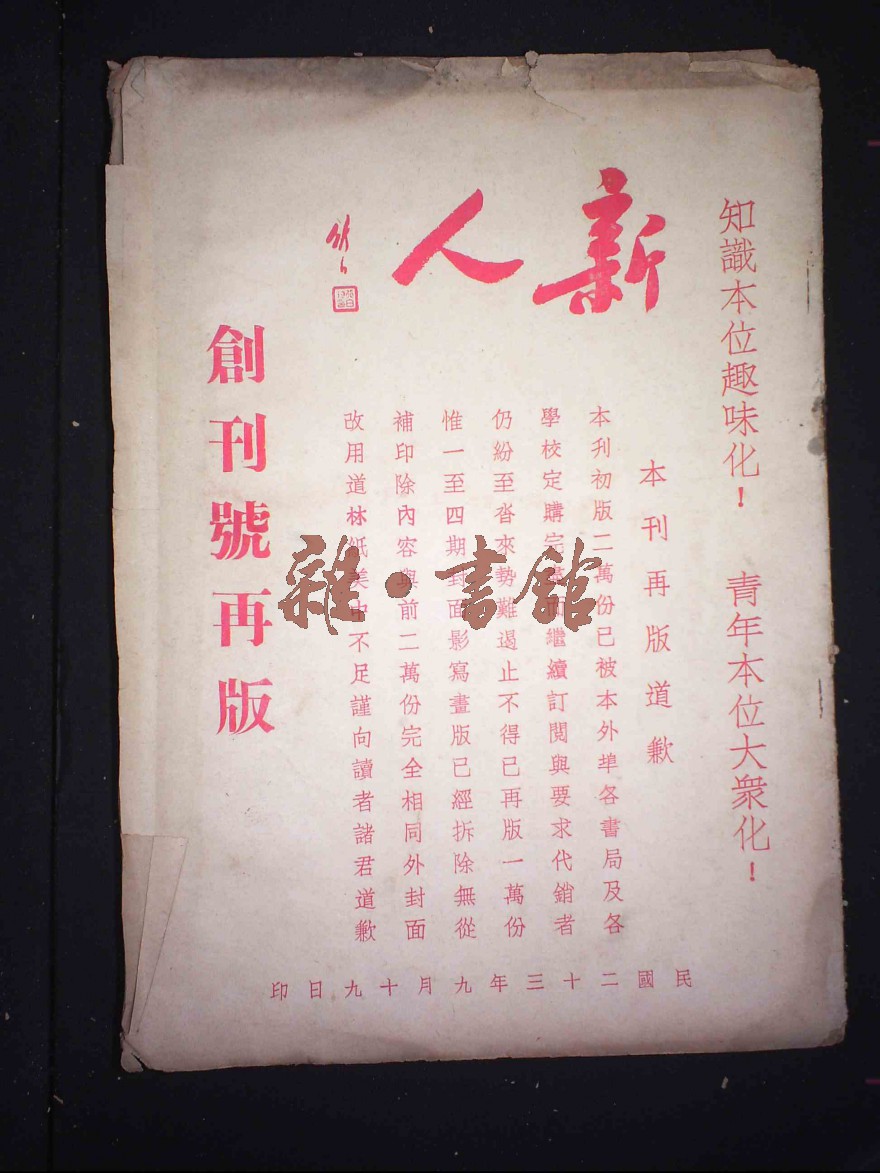 知識本位趣味化！　青年本位大衆化！
新人
本刊再版道歉
本刊初版二萬份已被本外埠各書局及各
學校定購完繼續訂閱與要求代銷者
仍紛至沓來勢難遏止不得已再版一萬份
惟一至四期封面影寫畫版已經拆除無從
補印除內容與前二萬份完全相同外封面
改用道林紙美中不足謹向讀者諸君道歉
創刊號再版
民國二十三年九月十九日印
雜·書館